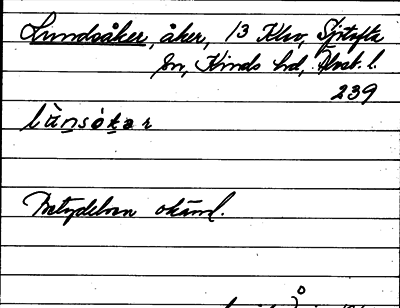 Lundsåker, åker, 13 Klev, Sjötofta
sn, Kinds hd, Älvsb. l.
239
lànsòkar
Betydelsen okänd.